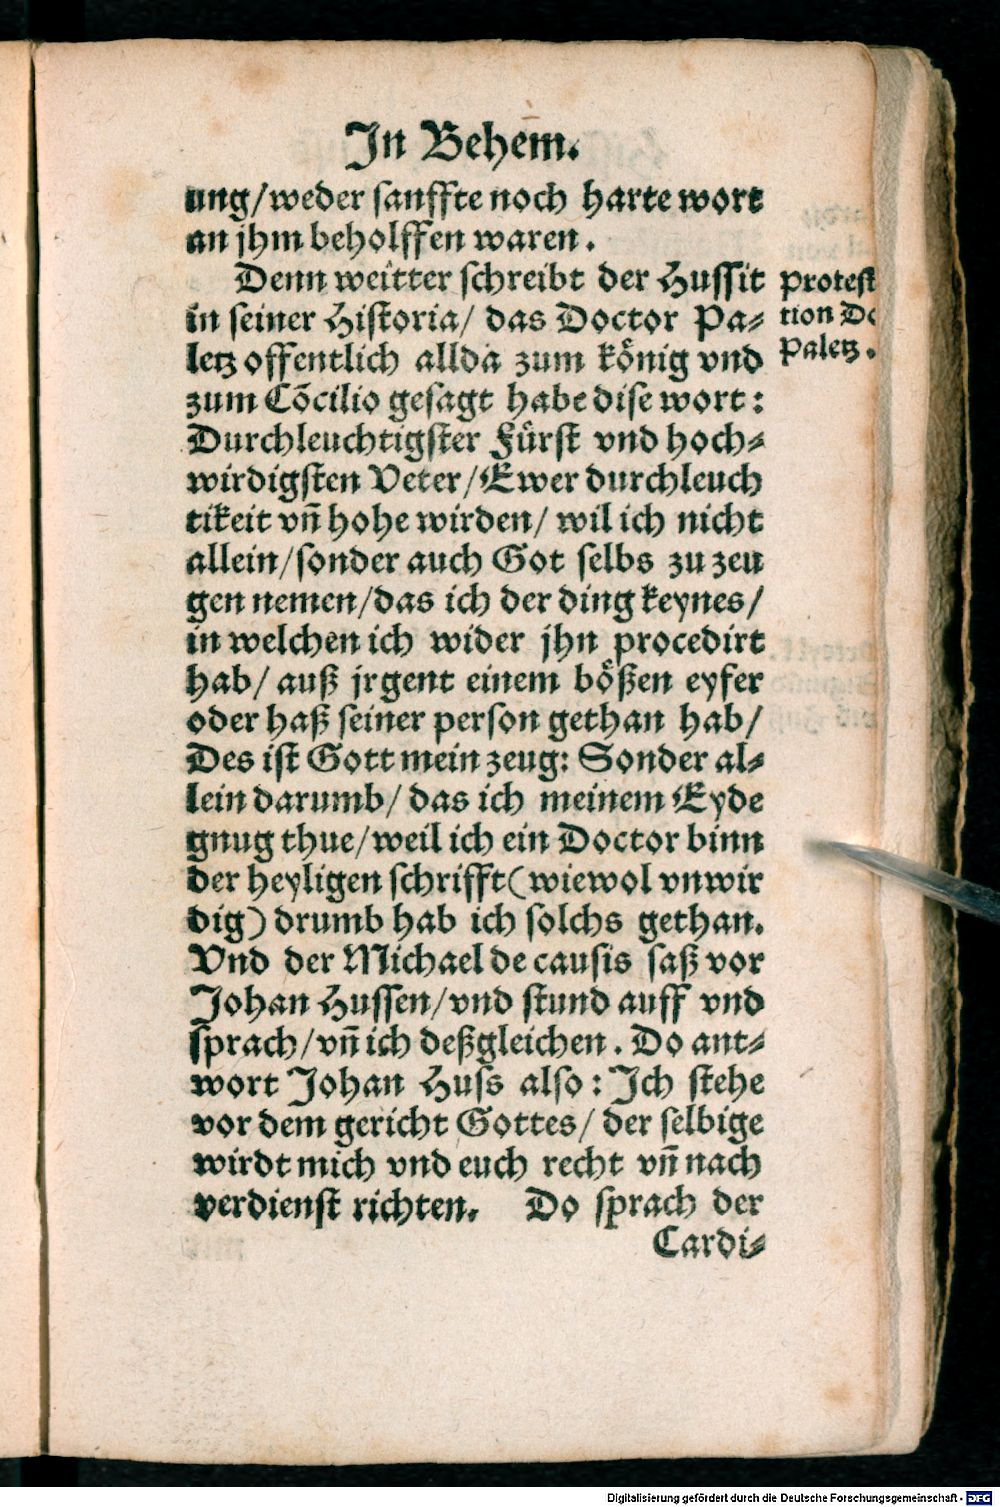 In Behem.
ung/weder sanffte noch harte wort
an jhm beholffen waren.
Denn weitter schreibt der Hussit
in seiner Historia/ das Doctor Pa⸗
letz offentlich allda zum koͤnig vnd
zum Cõcilio gesagt habe dise wort:
Durchleuchtigster Fuͤrst vnd hoch⸗
wirdigsten Veter/Ewer durchleuch
tikeit vñ hohe wirden/ wil ich nicht
allein/sonder auch Got selbs zu zeu
gen nemen/das ich der ding keynes/
in welchen ich wider jhn procedirt
hab/ auß jrgent einem boͤßen eyfer
oder haß seiner person gethan hab/
Des ist Gott mein zeug: Sonder al⸗
lein darumb/ das ich meinem Eyde
gnug thue/weil ich ein Doctor binn
der heyligen schrifft(wiewol vnwir
dig) drumb hab ich solchs gethan.
Vnd der Michael de causis saß vor
Johan Hussen/vnd stund auff vnd
sprach/vñ ich deßgleichen. Do ant⸗
wort Johan Huss also: Ich stehe
vor dem gericht Gottes/ der selbige
wirdt mich vnd euch recht vñ nach
verdienst richten. Do sprach der
Cardi⸗
Protest
tion Do
Paletz.
Digitalisierung gefördert durch die Deutsche Forschungsgemeinschaft - DFG